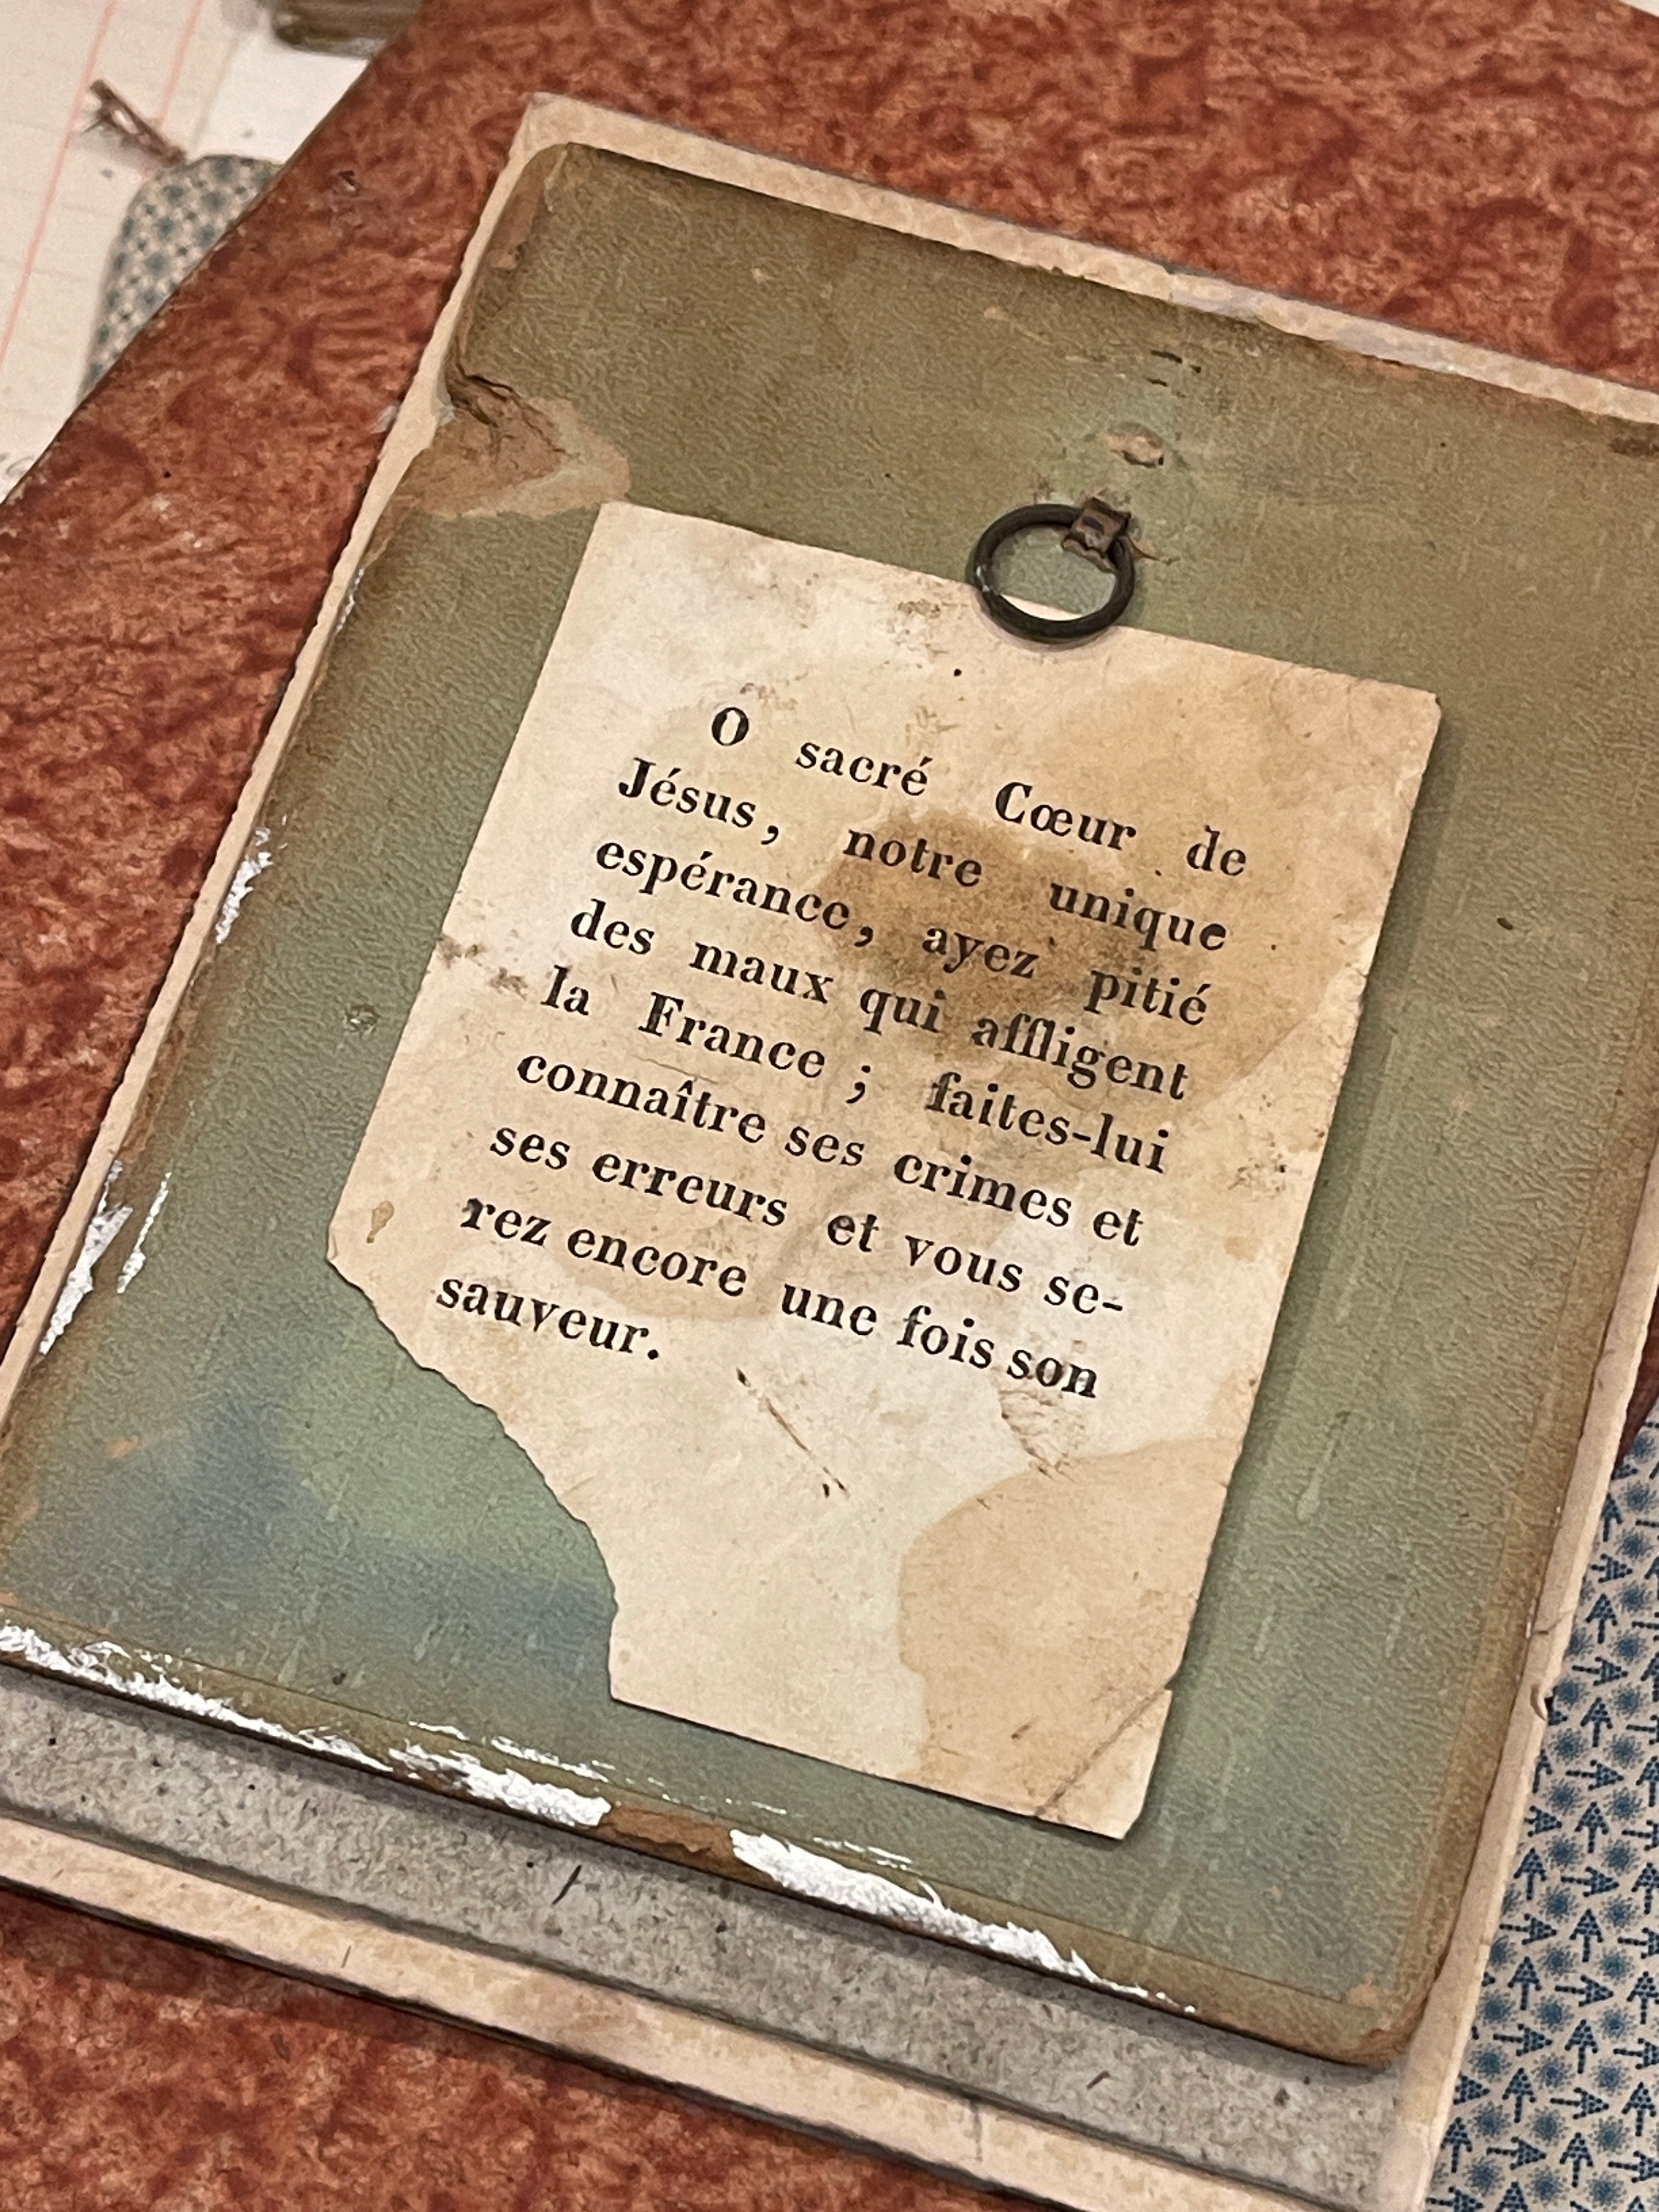 O sacré Cœur de
Jésus, notre unique
espérance, ayez pitié
des maux qui affligent
la France ; faites-lui
connaître ses crimes et
ses erreurs et vous se-
rez encore une fois son
sauveur.